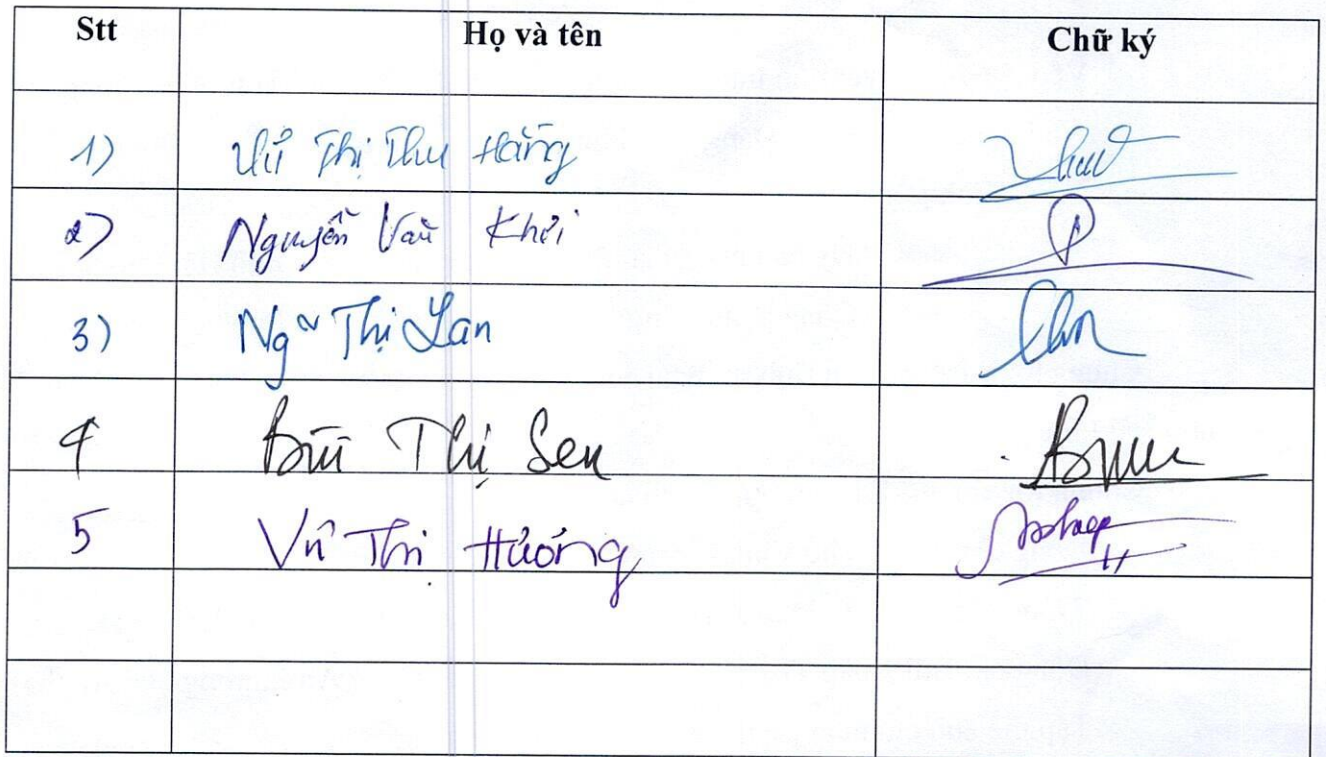 Stt Họ và tên Chữ ký
1) Vũ Thị Thu Hằng
2) Nguyễn Văn Khởi
3) Ngũ Thị Lan
4 Bùi Thị Sen
5 Vũ Thị Hương